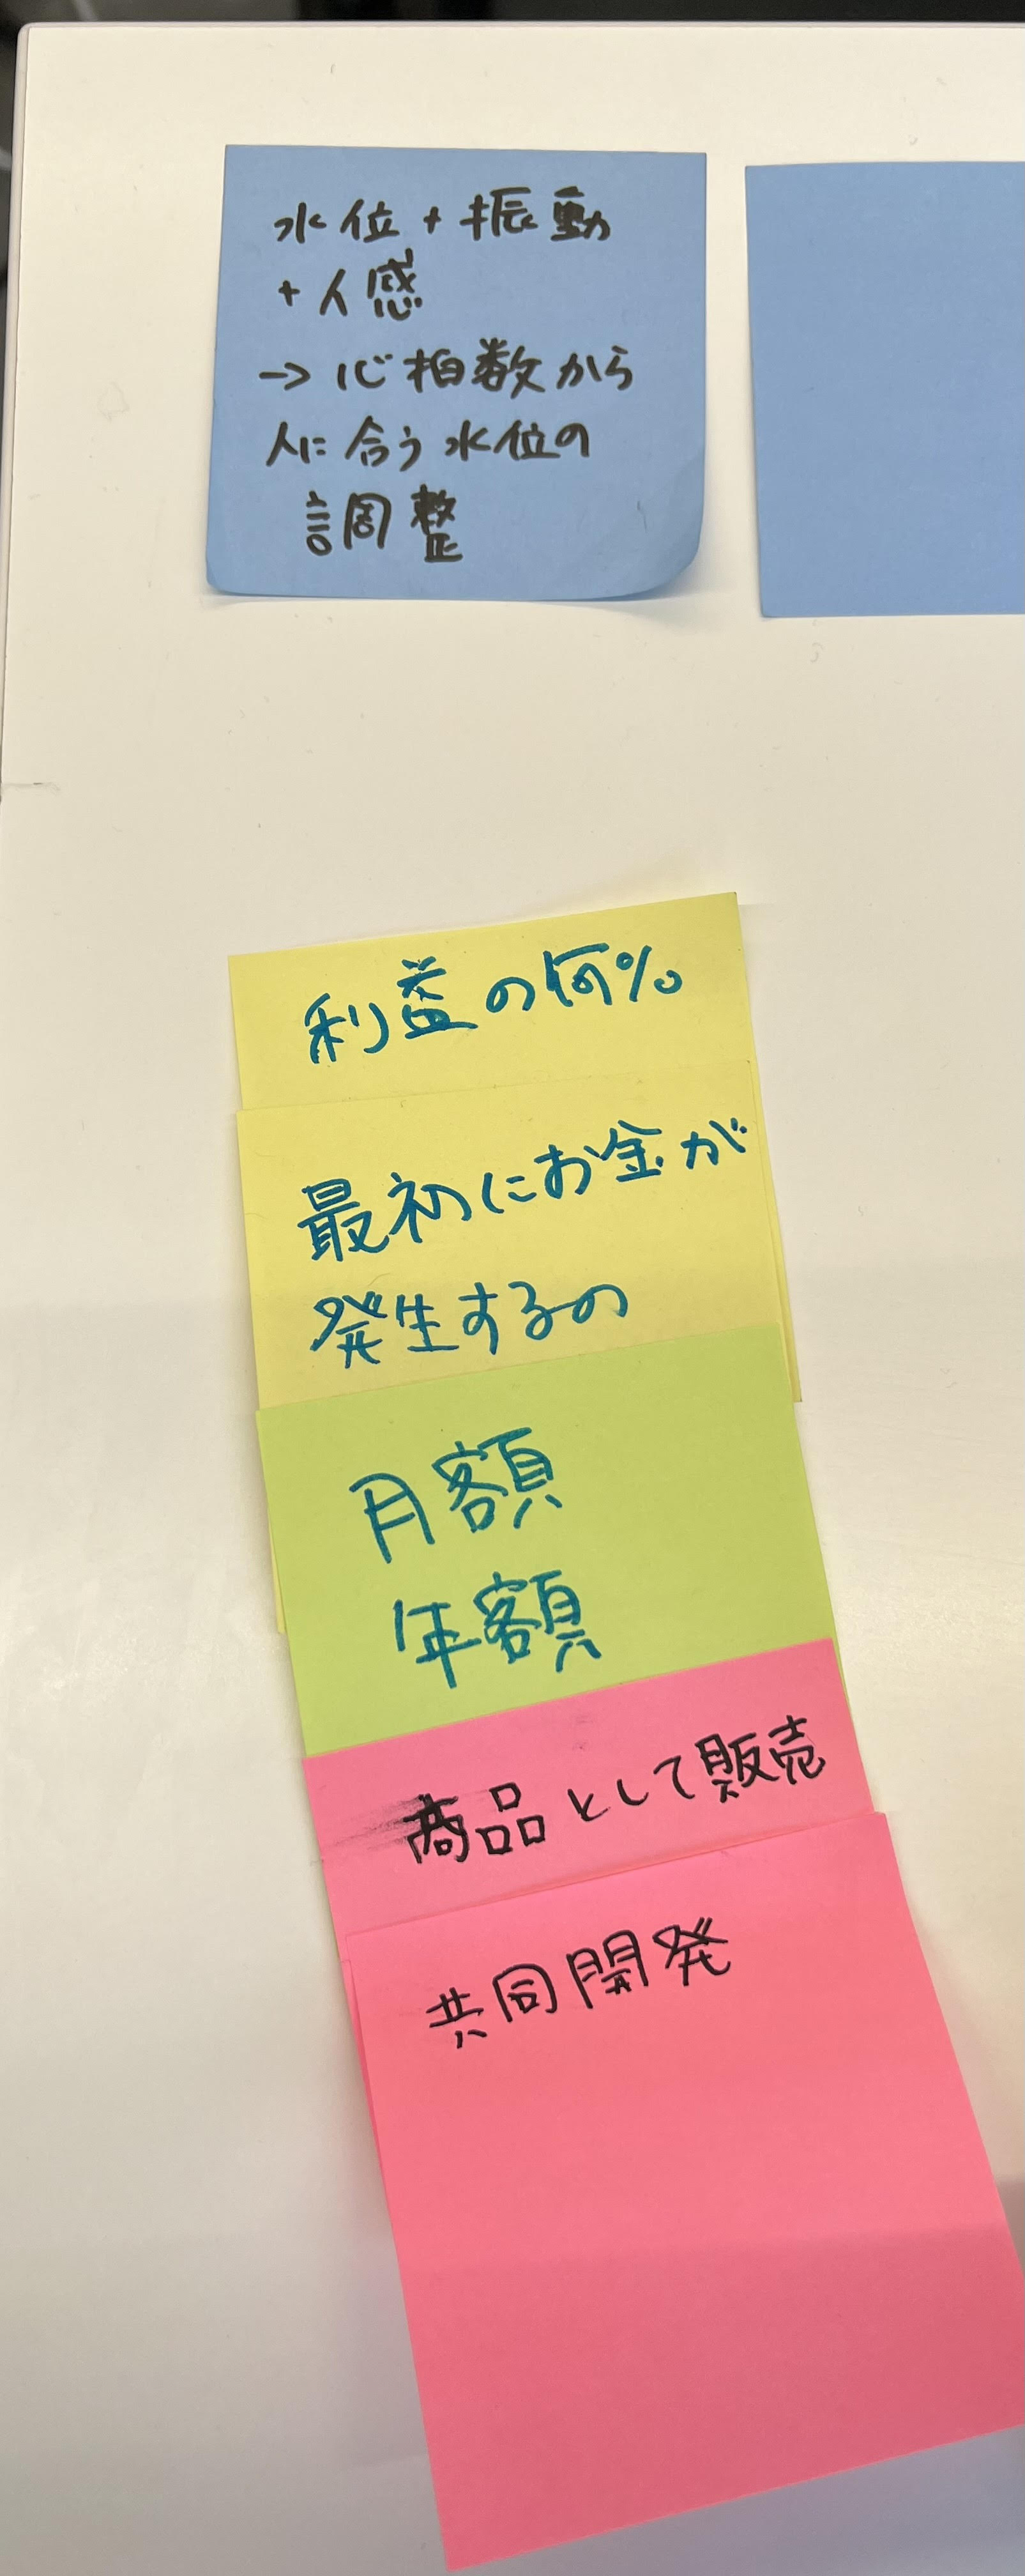 水位+振動
+人感
→心拍数から
人に合う水位の
調整
利益の何%
最初にお金が
発生するの
月額
年額
商品として販売
共同開発